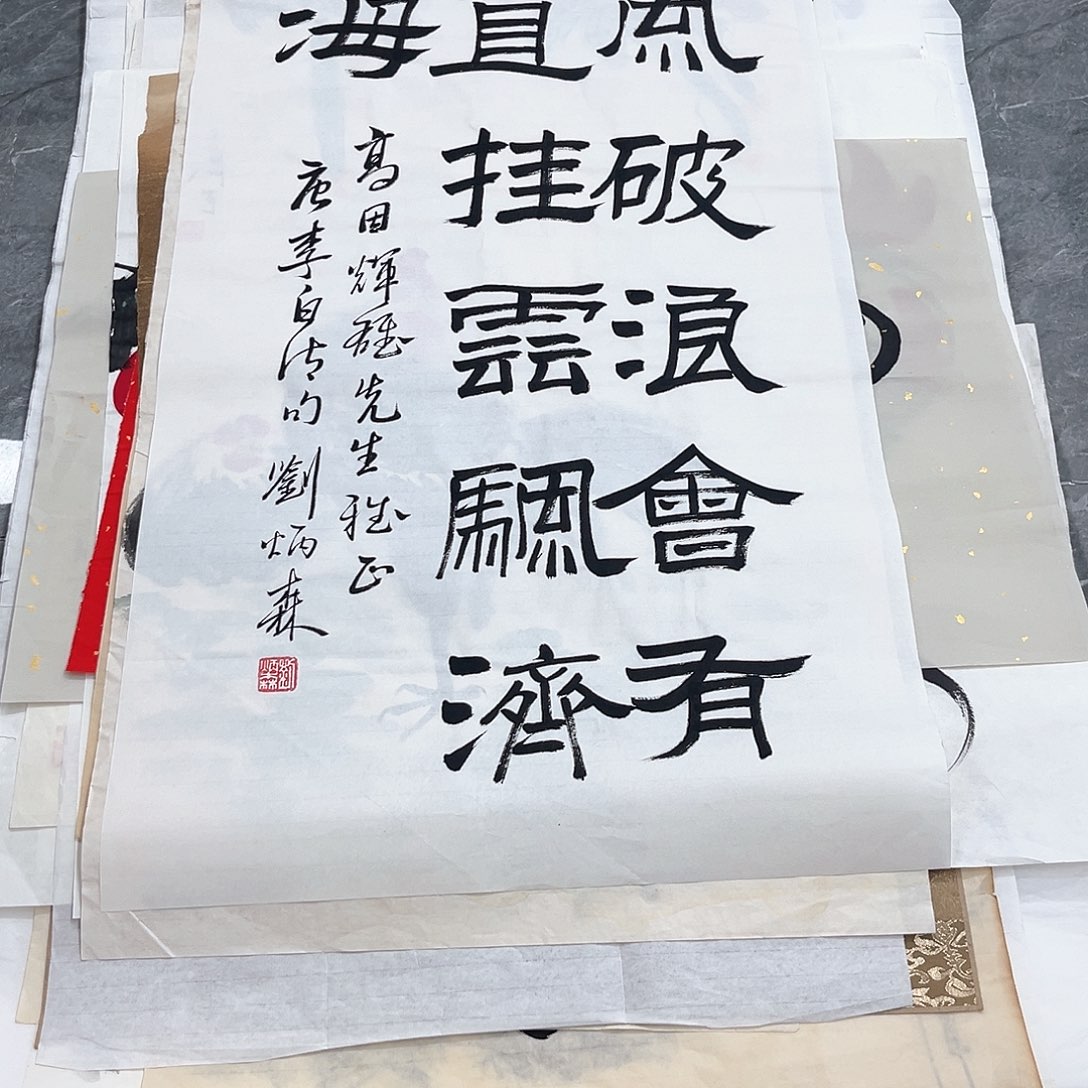 風破浪會有
直挂雲颿濟
海
髙田輝雄先生雅正
唐李白诗句 劉炳森
劉炳森